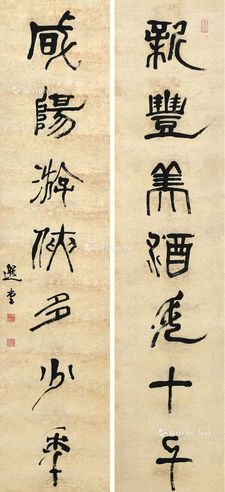 新豐美酒斗十千
咸陽游俠多少年
選堂